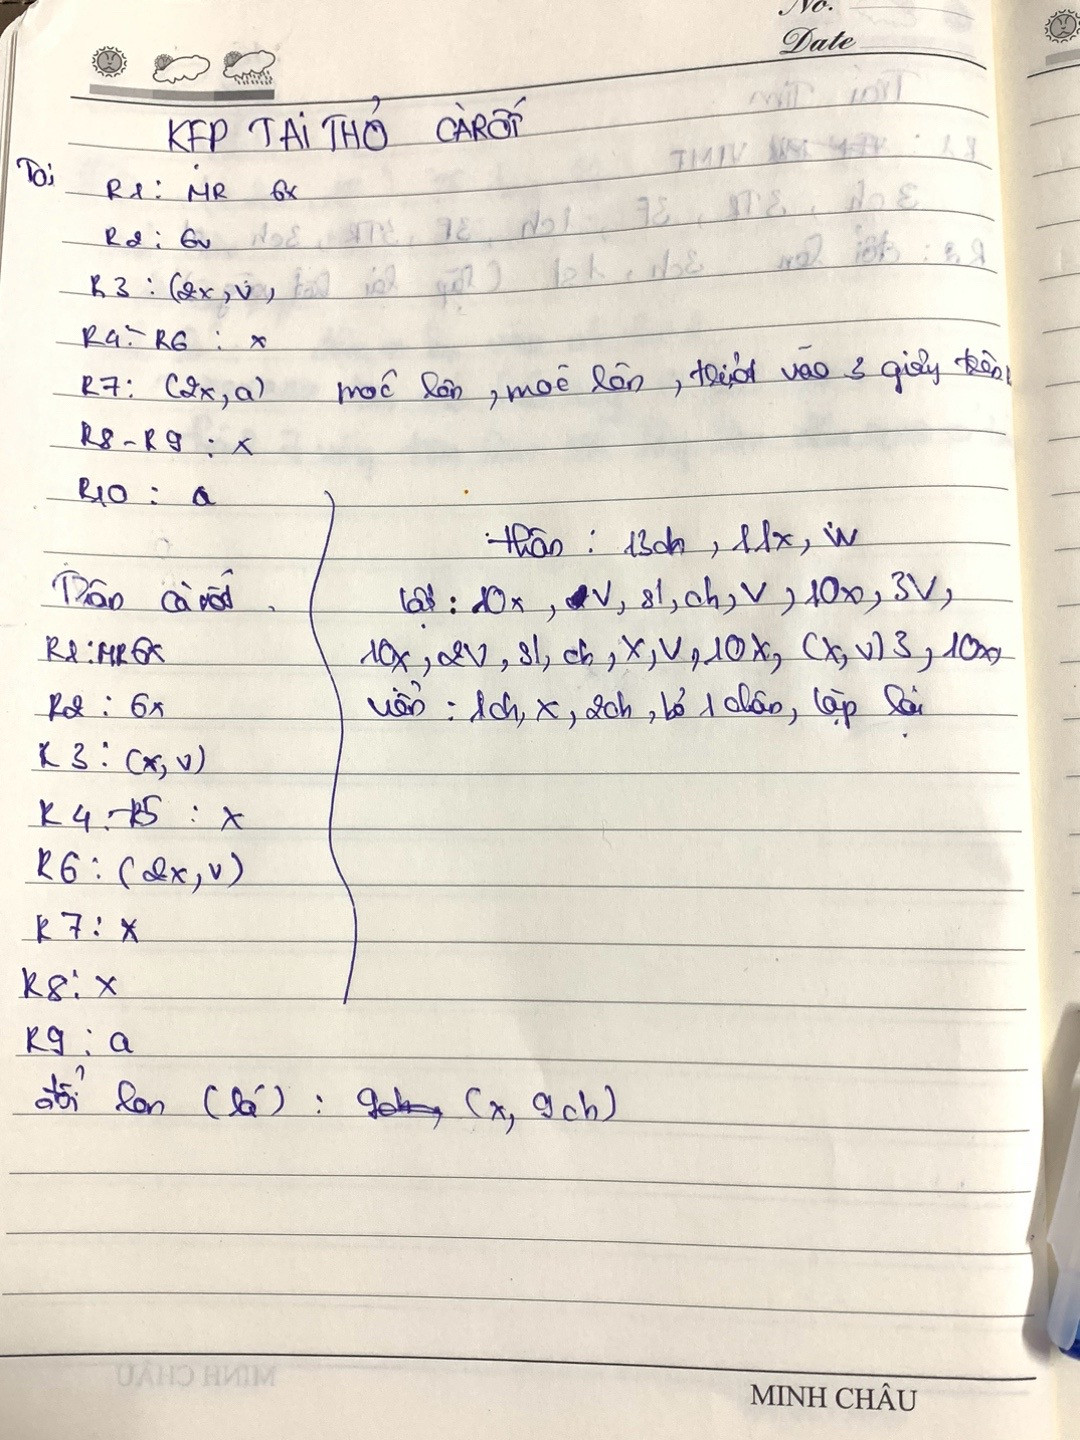 No.
Date
KẸP TAI THỎ CÀRỐT
Tai
R1: MR 6x
R2: 6v
R3: (2x, v,
R4-R6: x
R7: (2x, a) móc lên, móc lên, trượt vào 3 giây
R8-R9: x
R10: a
thân: 13ch, 11x, W
lật: 10x, V, sl, ch, V, 10x, 3V,
10x, 2V, sl, ch, X, V, 10X, (X, V)3, 10x,
viền: 1ch, x, 2ch, bỏ 1 chân, lặp lại
cà rốt
R1: MR 6x
R2: 6x
R3: (x, v)
R4-R5: x
R6: (2x, v)
R7: x
R8: x
R9: a
đổi len (lá): 9ch, (x, 9ch)
MINH CHÂU